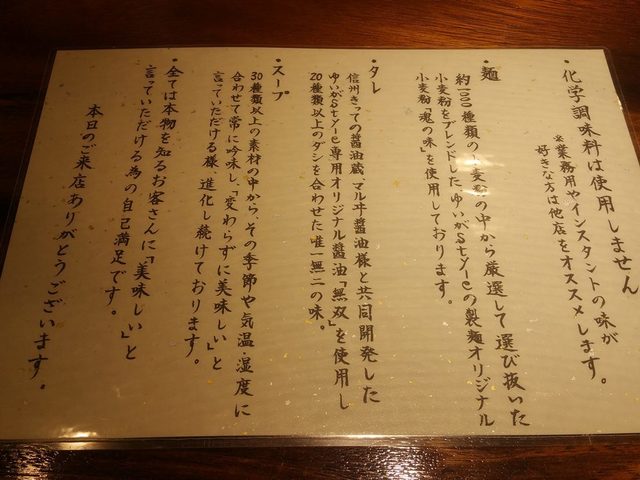 ・化学調味料は使用しません
※業務用やインスタントの味が
好きな方は他店をオススメします。
・麺
約100種類の小麦粉の中から厳選して選び抜いた
小麦粉をブレンドした、ゆいがStyleの製麺オリジナル
小麦粉「魂の味」を使用しております。
・タレ
信州きっての醤油蔵、マルヰ醤油様と共同開発した
ゆいがStyle専用オリジナル醤油「無双」を使用し
20種類以上のダシを合わせた唯一無二の味。
・スープ
30種類以上の素材の中から、その季節や気温・湿度に
合わせて常に吟味し、「変わらずに美味しい」と
言っていただける様、進化し続けております。
・全ては本物を知るお客さんに「美味しい」と
言っていただける為の自己満足です。
本日のご来店ありがとうございます。